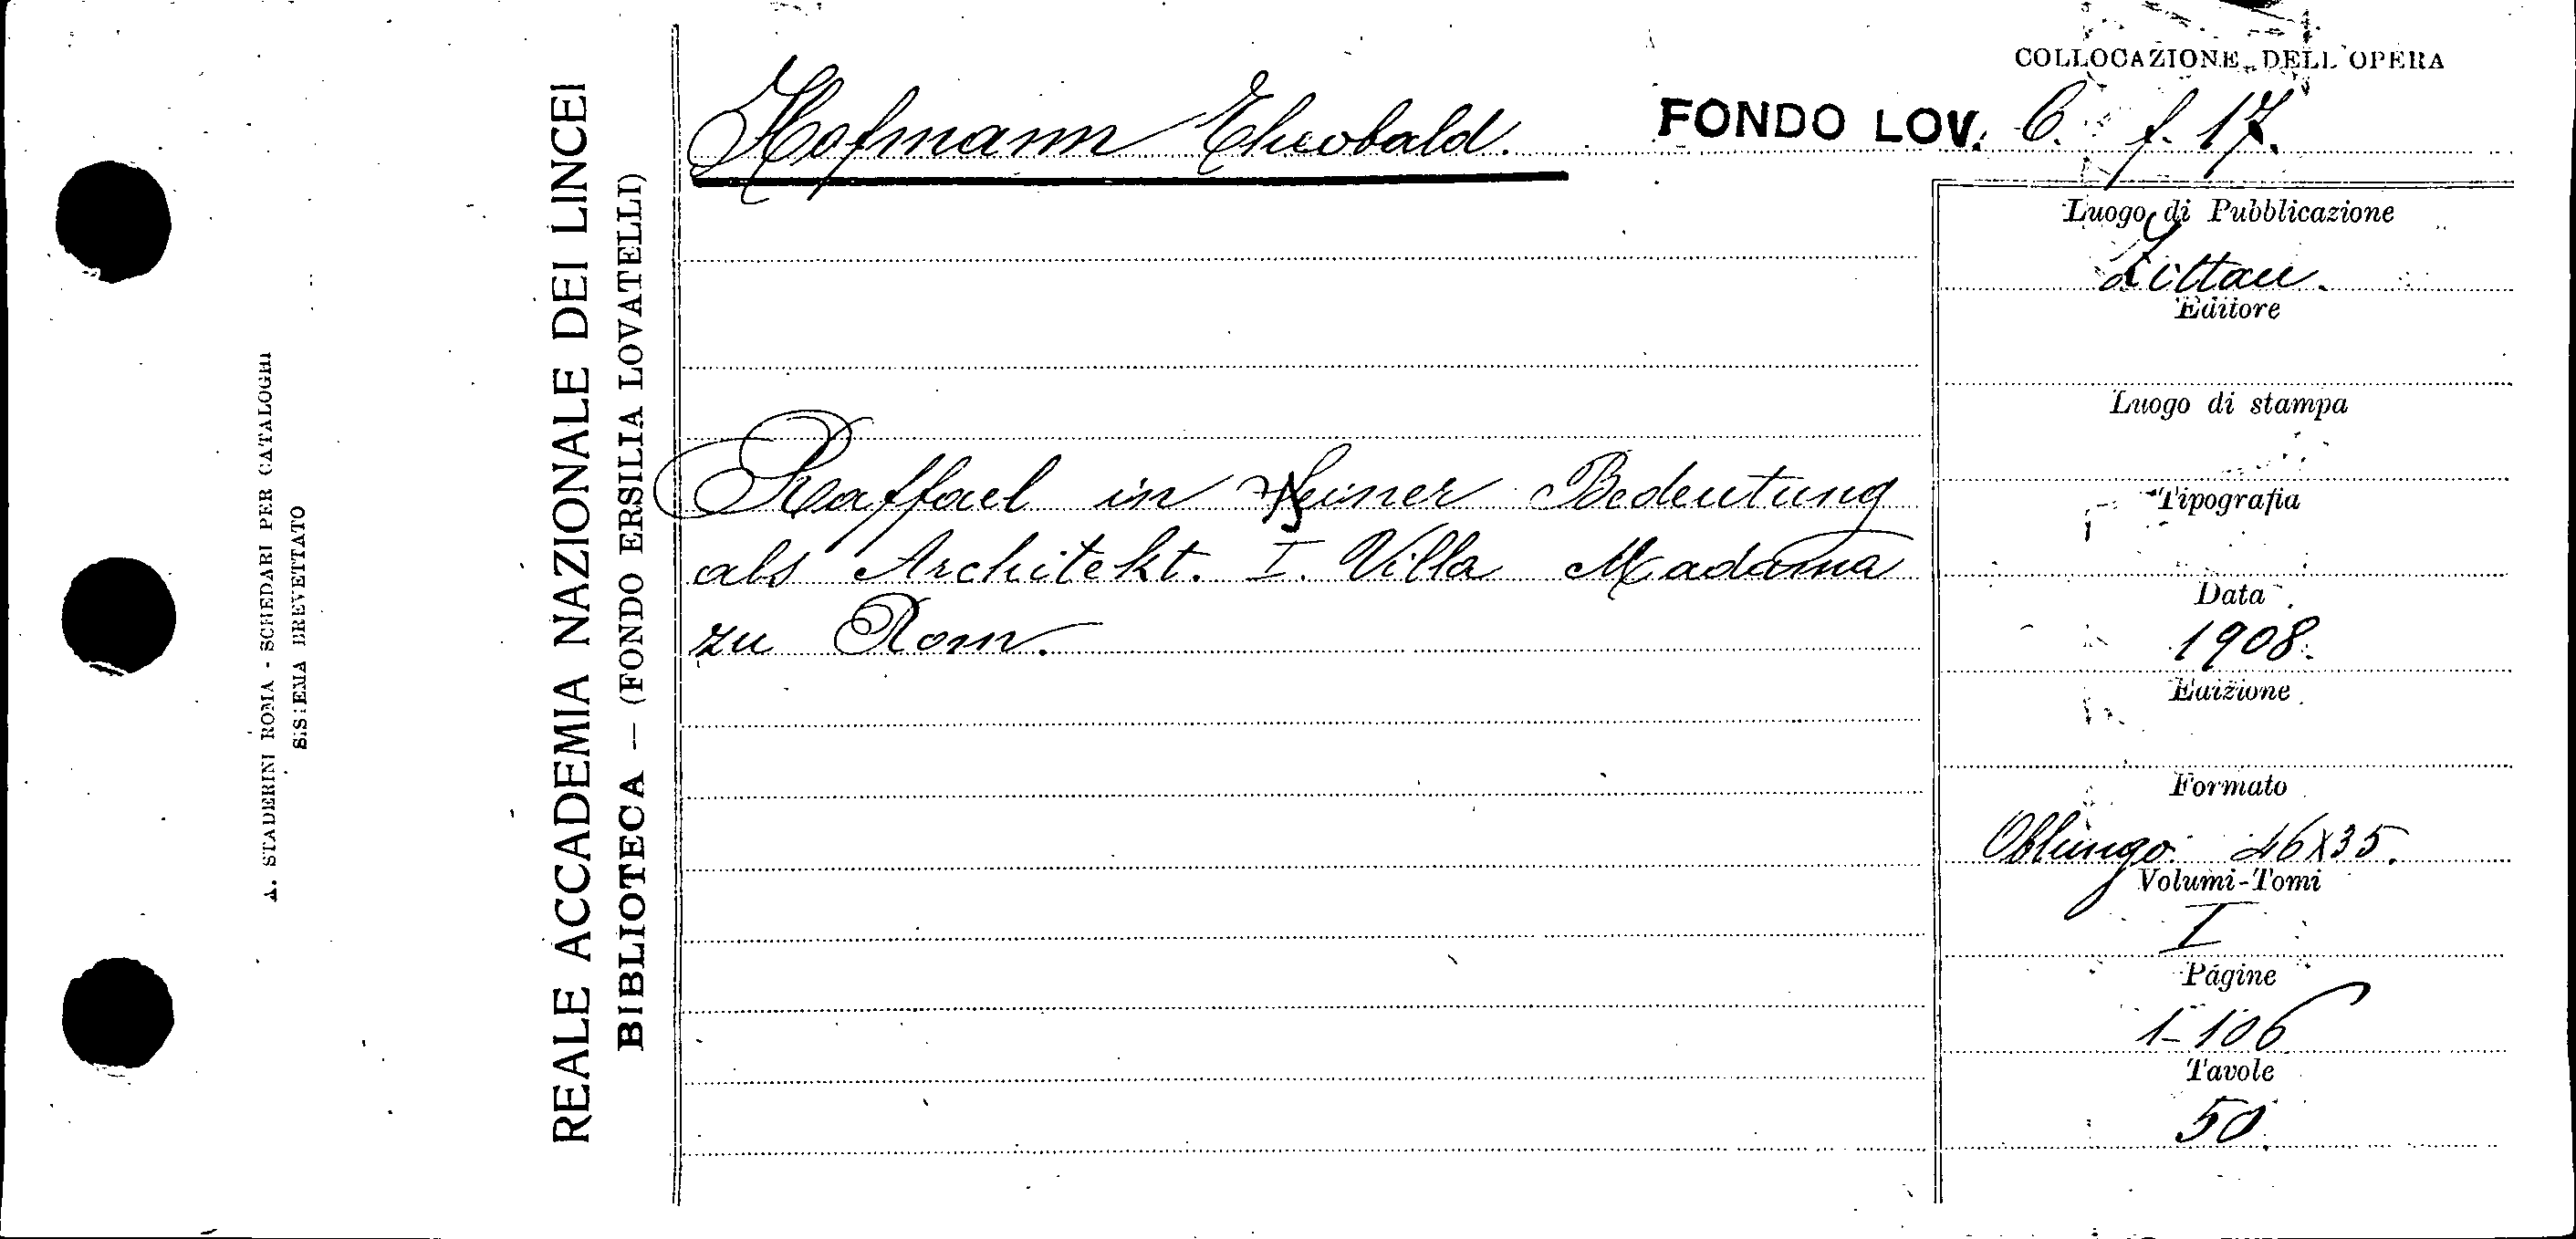 A. STADERINI ROMA - SCHEDARI PER CATALOGHI
SISTEMA BREVETTATO
REALE ACCADEMIA NAZIONALE DEI LINCEI
BIBLIOTECA — (FONDO ERSILIA LOVATELLI)
Hofmann Theobald.
COLLOCAZIONE DELL'OPERA
FONDO LOV. 6. f. 17.
Raffael in seiner Bedeutung
als Architekt. I. Villa Madama
zu Rom.
Luogo di Pubblicazione
Zittau.
Editore
Luogo di stampa
Tipografia
Data
1908.
Edizione
Formato
Oblungo 46x35.
Volumi-Tomi
I
Pagine
1-106
Tavole
50.